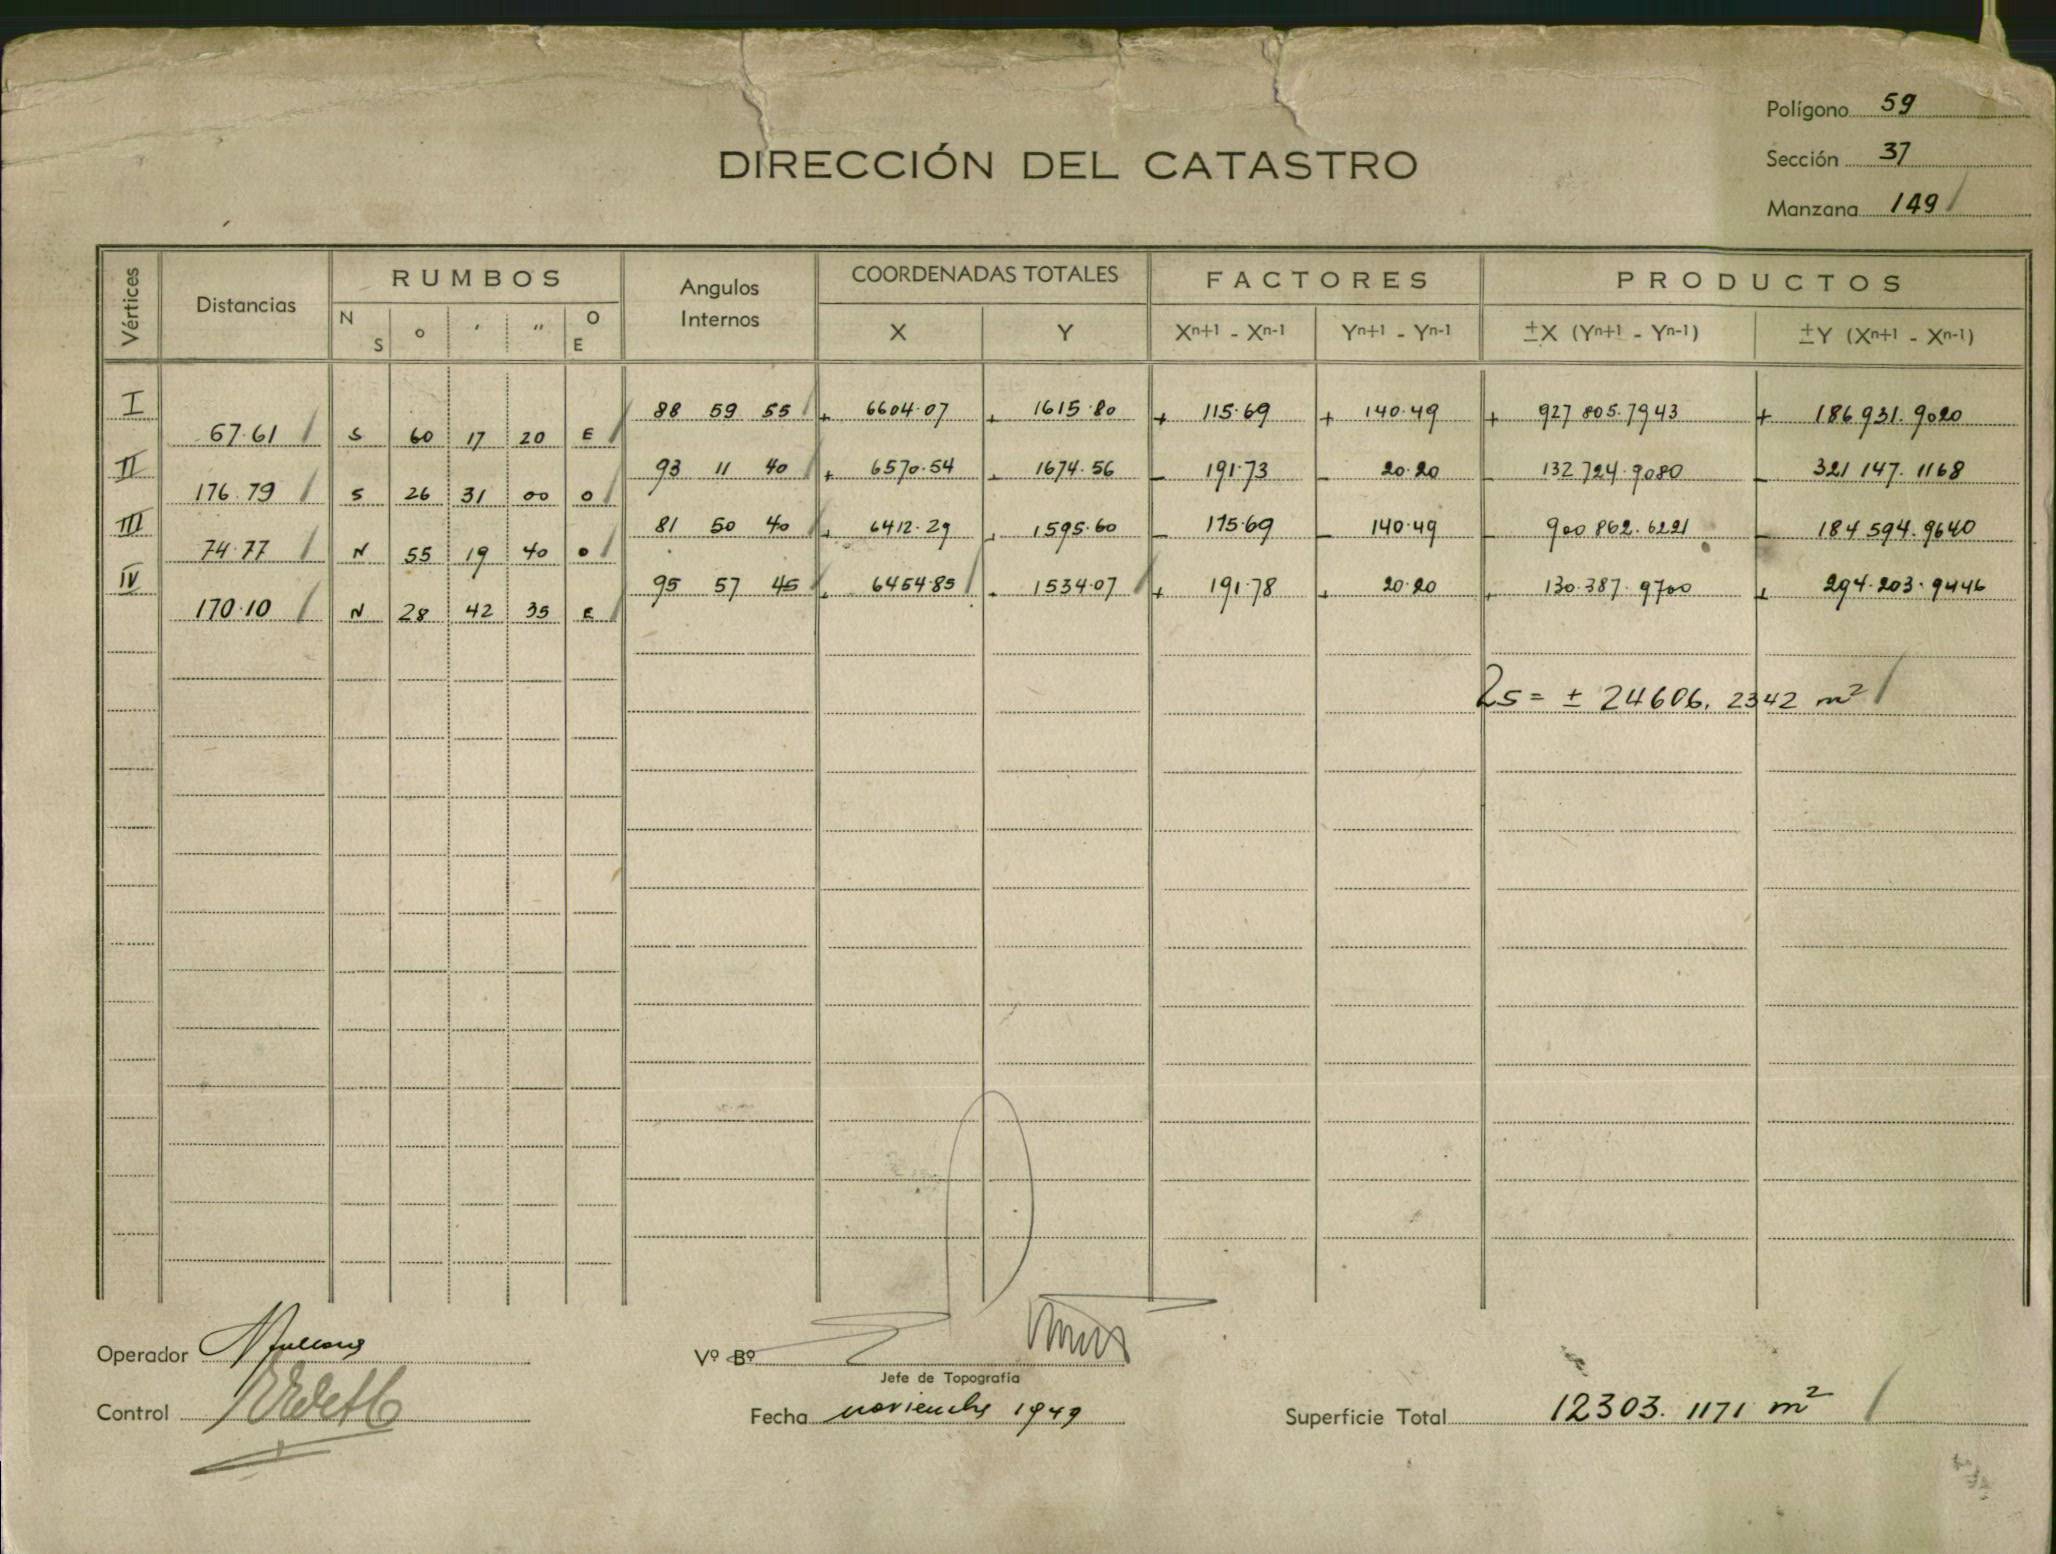 Polígono 59
Sección 37
Manzana 149
DIRECCIÓN DEL CATASTRO
Vértices Distancias RUMBOS Angulos Internos COORDENADAS TOTALES FACTORES PRODUCTOS
N S o ' " O E X Y Xn+1 - Xn-1 Yn+1 - Yn-1 ±X (Yn+1 - Yn-1) ±Y (Xn+1 - Xn-1)
I 88 59 55 + 6604.07 + 1615.80 + 115.69 + 140.49 + 927 805.7943 + 186 931.9020
67.61 S 60 17 20 E
II 93 11 40 + 6570.54 + 1674.56 - 191.73 - 20.20 - 132 724.9080 - 321 147.1168
176.79 S 26 31 00 O
III 81 50 40 + 6412.29 + 1595.60 - 115.69 - 140.49 - 900 862.6221 - 184 594.9640
74.77 N 55 19 40 O
IV 95 57 45 + 6454.85 + 1534.07 + 191.78 + 20.20 + 130.387.9700 + 294.203.9446
170.10 N 28 42 35 E
2s = ± 24606.2342 m²
Operador
Vº Bº
Jefe de Topografía
Control
Fecha noviembre 1949
Superficie Total 12303.1171 m²